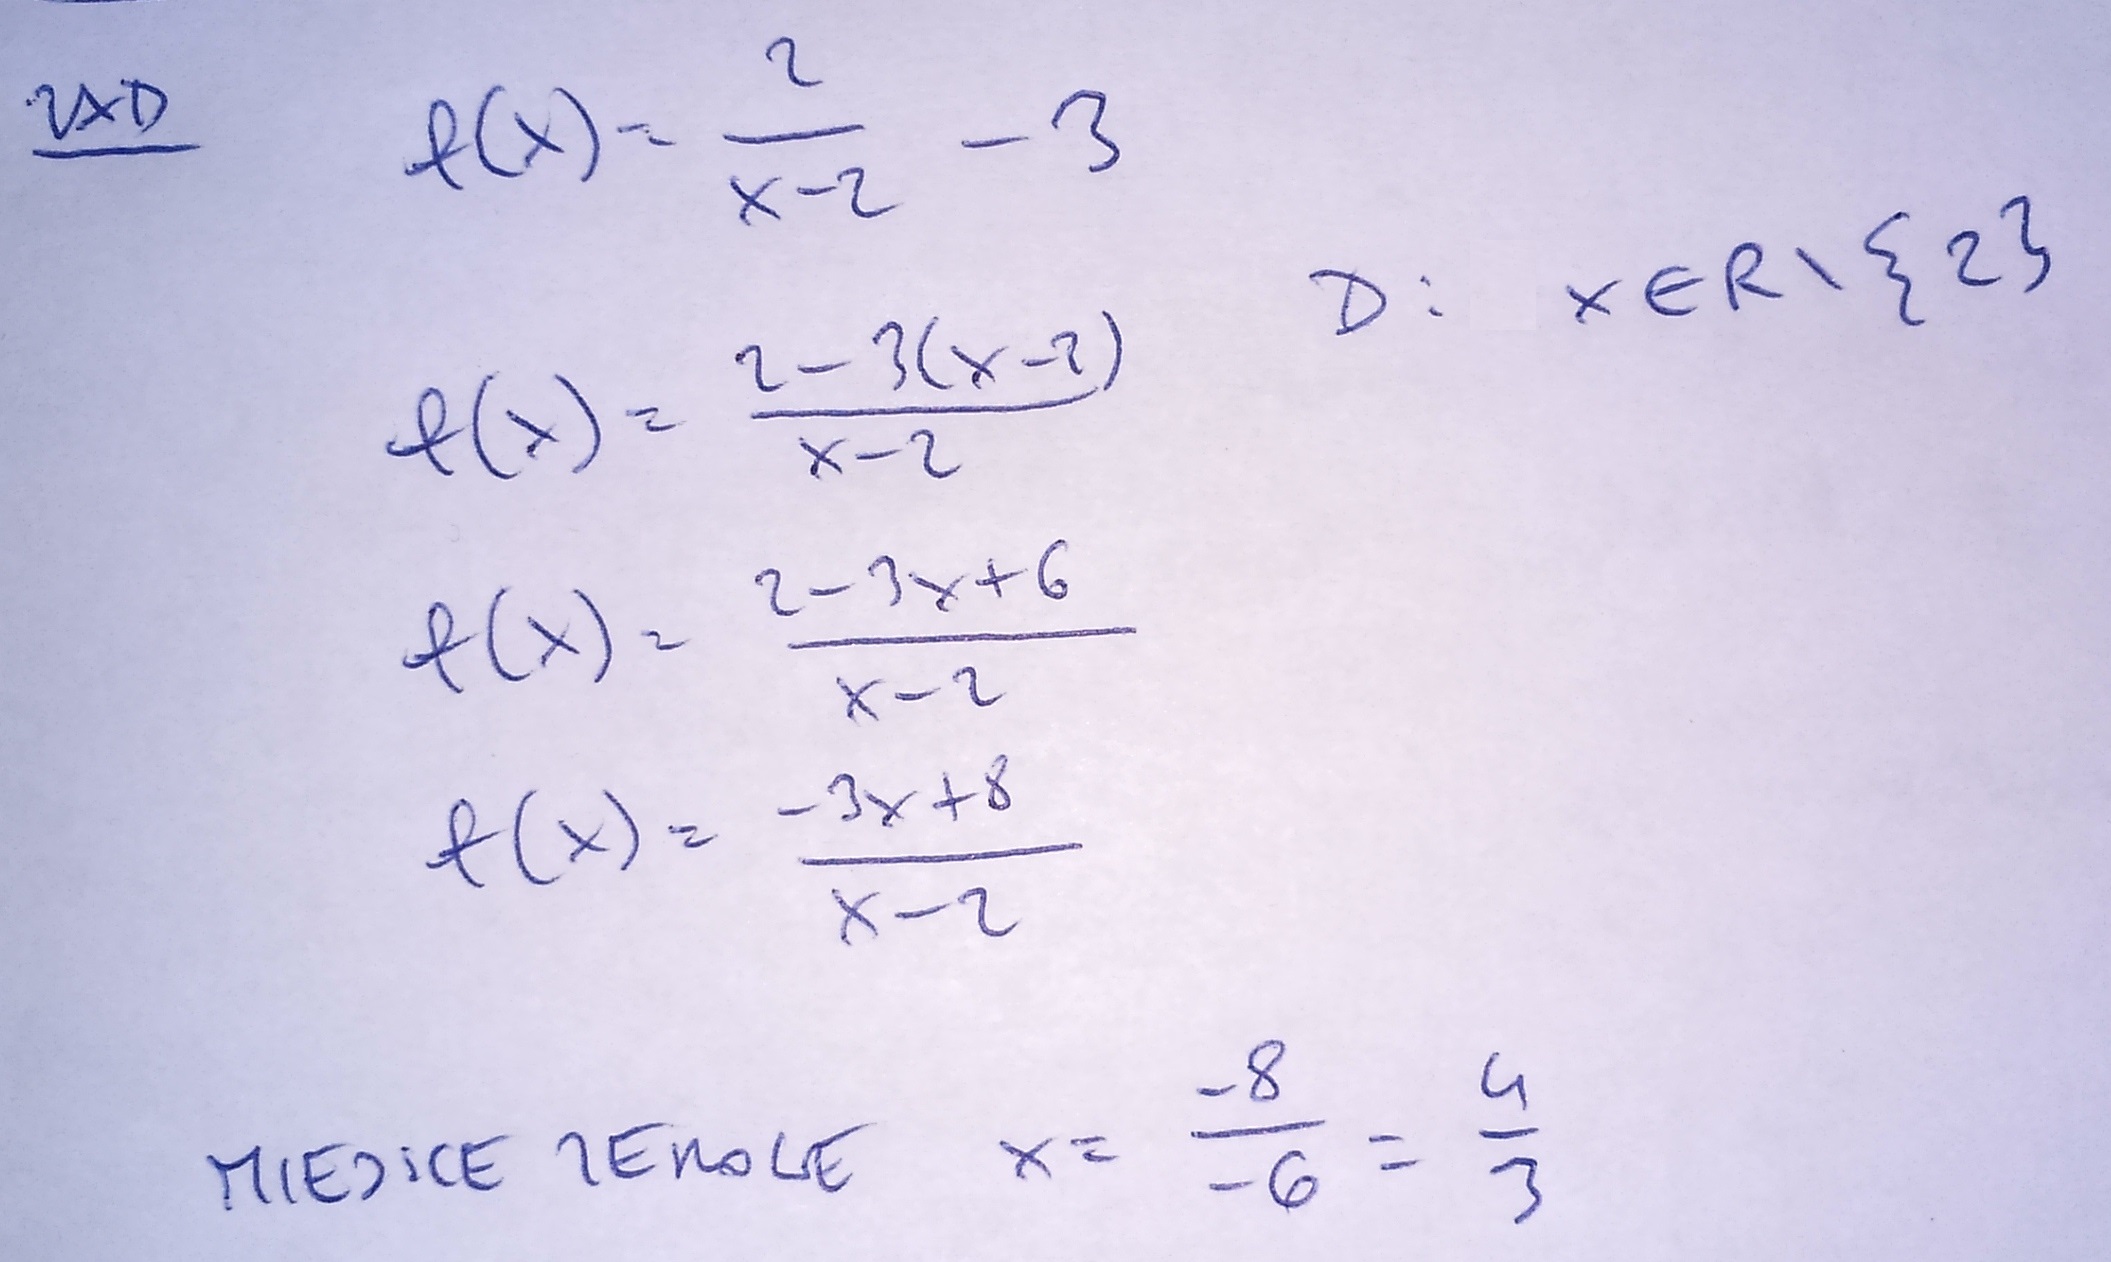 ZAD f(x) = 2/(x-2) - 3
D: x∈R\{2}
f(x) = (2-3(x-2))/(x-2)
f(x) = (2-3x+6)/(x-2)
f(x) = (-3x+8)/(x-2)
MIEJSCE ZEROWE x = -8/-6 = 4/3